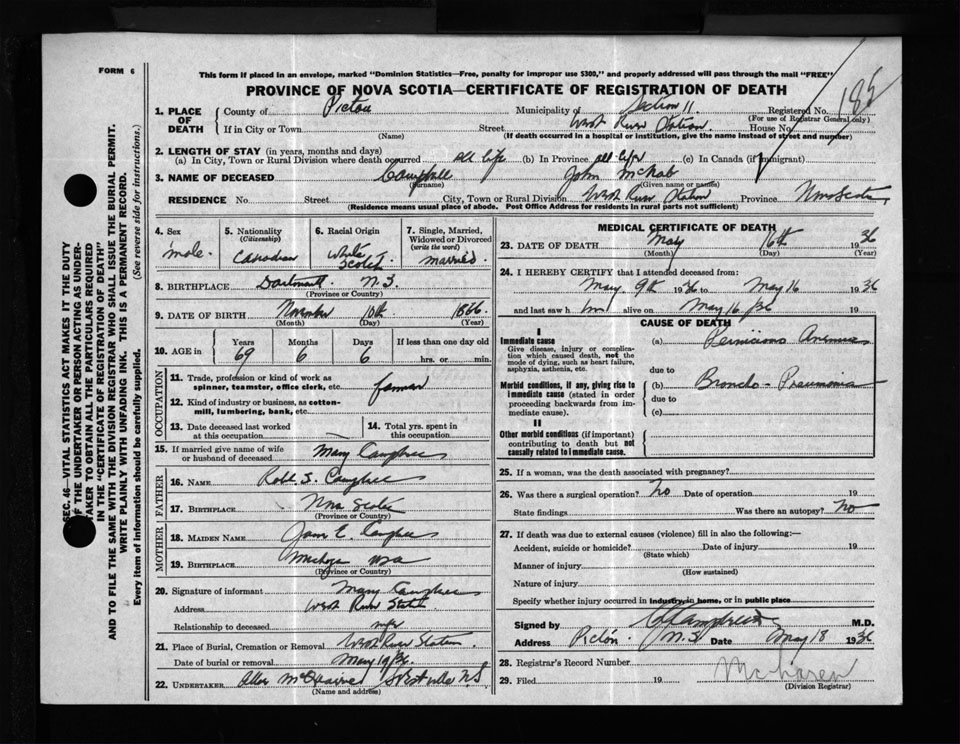 FORM 6
This form if placed in an envelope, marked "Dominion Statistics—Free, penalty for improper use $300," and properly addressed will pass through the mail "FREE"
PROVINCE OF NOVA SCOTIA—CERTIFICATE OF REGISTRATION OF DEATH
185
1. PLACE OF DEATH
County of Pictou Municipality of Section 11 Registered No.
(For use of Registrar General only)
If in City or Town Street West River Station House No.
(Name) (If death occurred in a hospital or institution, give the name instead of street and number)
2. LENGTH OF STAY (in years, months and days)
(a) In City, Town or Rural Division where death occurred all life (b) In Province all life (c) In Canada (if immigrant)
3. NAME OF DECEASED Campbell John McNab
(Surname) (Given name or names)
RESIDENCE No. Street City, Town or Rural Division West River Station Province Nova Scotia
(Residence means usual place of abode. Post Office Address for residents in rural parts not sufficient)
4. Sex male.
5. Nationality (Citizenship) Canadian
6. Racial Origin White Scotch
7. Single, Married, Widowed or Divorced (write the word) married
8. BIRTHPLACE N.S.
(Province or Country)
9. DATE OF BIRTH November 10th 1866
(Month) (Day) (Year)
10. AGE in Years Months Days If less than one day old
69 6 6 hrs. or min.
OCCUPATION
11. Trade, profession or kind of work as spinner, teamster, office clerk, etc. farmer
12. Kind of industry or business, as cotton-mill, lumbering, bank, etc.
13. Date deceased last worked at this occupation
14. Total yrs. spent in this occupation
15. If married give name of wife or husband of deceased Mary Campbell
FATHER
16. NAME Robt. S. Campbell
17. BIRTHPLACE Nova Scotia
(Province or Country)
MOTHER
18. MAIDEN NAME E. Campbell
19. BIRTHPLACE
(Province or Country)
20. Signature of informant Mary Campbell
Address West River Station
Relationship to deceased wife
21. Place of Burial, Cremation or Removal West River Station
Date of burial or removal May 19/36.
22. UNDERTAKER Westville N.S.
(Name and address)
MEDICAL CERTIFICATE OF DEATH
23. DATE OF DEATH May 16th 1936
(Month) (Day) (Year)
24. I HEREBY CERTIFY that I attended deceased from:
May 9th 1936 to May 16 1936
and last saw him alive on May 16/36 19
CAUSE OF DEATH
I
Immediate cause
Give disease, injury or complication which caused death, not the mode of dying, such as heart failure, asphyxia, asthenia, etc.
(a) Pernicious Anemia
due to
Morbid conditions, if any, giving rise to immediate cause (stated in order proceeding backwards from immediate cause).
(b) Broncho-Pneumonia
due to
(c)
II
Other morbid conditions (if important) contributing to death but not causally related to immediate cause.
25. If a woman, was the death associated with pregnancy?
26. Was there a surgical operation? No Date of operation 19
State findings Was there an autopsy? No
27. If death was due to external causes (violence) fill in also the following:—
Accident, suicide or homicide? Date of injury 19
(State which)
Manner of injury
(How sustained)
Nature of injury
Specify whether injury occurred in industry, in home, or in public place
Signed by M.D.
Address Pictou N.S. Date May 18 1936
28. Registrar's Record Number
29. Filed 19 McLaren
(Division Registrar)
SEC. 46—VITAL STATISTICS ACT MAKES IT THE DUTY
OF THE UNDERTAKER OR PERSON ACTING AS UNDERTAKER TO OBTAIN ALL THE PARTICULARS REQUIRED
IN THE "CERTIFICATE OF REGISTRATION OF DEATH"
AND TO FILE THE SAME WITH THE DIVISION REGISTRAR WHO SHALL ISSUE THE BURIAL PERMIT.
WRITE PLAINLY WITH UNFADING INK. THIS IS A PERMANENT RECORD.
Every item of information should be carefully supplied. (See reverse side for instructions.)